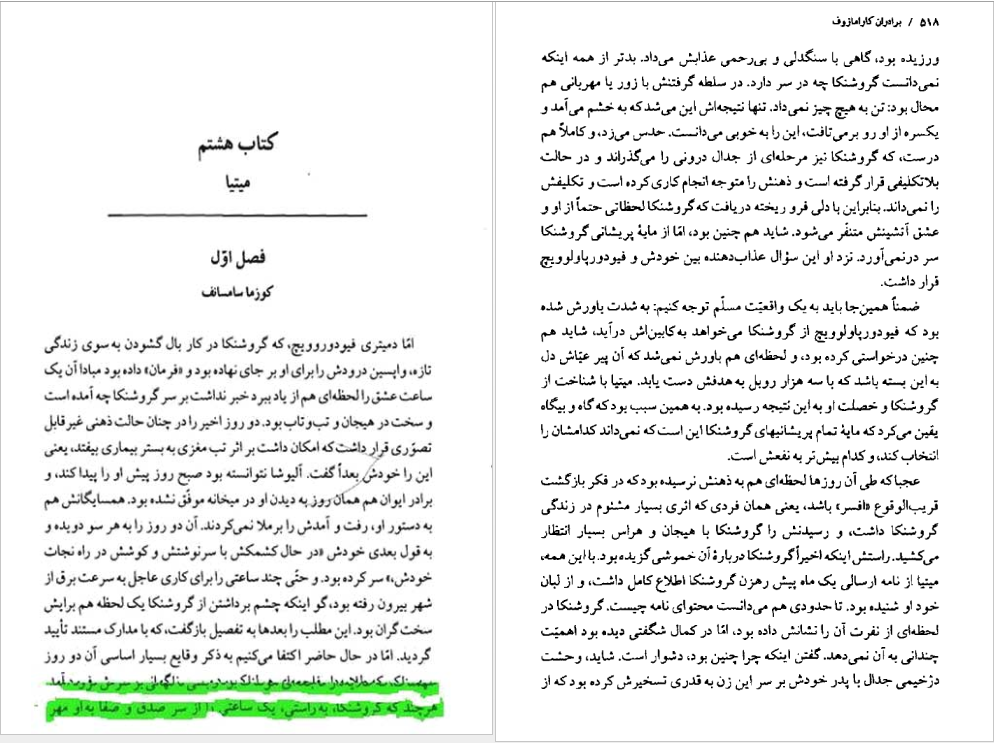 کتاب هشتم
میتیا
فصل اوّل
کوزما سامسانف
امّا دمیتری فیودوروویچ، که گروشنکا در کار بال گشودن به سوی زندگی
تازه، واپسین درودش را برای او بر جای نهاده بود و «فرمان» داده بود مبادا آن یک
ساعت عشق را لحظه‌ای هم از یاد ببرد خبر نداشت بر سر گروشنکا چه آمده است
و سخت در هیجان و تب‌وتاب بود. دو روز اخیر را در چنان حالت ذهنی غیرقابل
تصوّری قرار داشت که امکان داشت بر اثر تب مغزی به بستر بیماری بیفتد، یعنی
این را خودش بعداً گفت. آلیوشا نتوانسته بود صبح روز پیش او را پیدا کند، و
برادر ایوان هم همان روز به دیدن او در میخانه موفّق نشده بود. همسایگانش هم
به دستور او، رفت و آمدش را برملا نمی‌کردند. آن دو روز را به هر سو دویده و
به قول بعدی خودش «در حال کشمکش با سرنوشتش و کوشش در راه نجات
خودش،» سر کرده بود. و حتّی چند ساعتی را برای کاری عاجل به سرعت برق از
شهر بیرون رفته بود، گو اینکه چشم برداشتن از گروشنکا یک لحظه هم برایش
سخت گران بود. این مطلب را بعدها به تفصیل بازگفت، که با مدارک مستند تأیید
گردید. امّا در حال حاضر اکتفا می‌کنیم به ذکر وقایع بسیار اساسی آن دو روز
که ناگهانی بر سرش فرود آمد.
هرچند که گروشنکا، به‌راستی، یک ساعتی را از سر صدق و صفا به او مهر
۵۱۸ / برادران کارامازوف
ورزیده بود، گاهی با سنگدلی و بی‌رحمی عذابش می‌داد. بدتر از همه اینکه
نمی‌دانست گروشنکا چه در سر دارد. در سلطه گرفتنش با زور یا مهربانی هم
محال بود: تن به هیچ چیز نمی‌داد. تنها نتیجه‌اش این می‌شد که به خشم می‌آمد و
یکسره از او رو برمی‌تافت، این را به خوبی می‌دانست. حدس می‌زد، و کاملاً هم
درست، که گروشنکا نیز مرحله‌ای از جدال درونی را می‌گذراند و در حالت
بلاتکلیفی قرار گرفته است و ذهنش را متوجه انجام کاری کرده است و تکلیفش
را نمی‌داند. بنابراین با دلی فرو ریخته دریافت که گروشنکا لحظاتی حتماً از او و
عشق آتشینش متنفّر می‌شود. شاید هم چنین بود، امّا از مایهٔ پریشانی گروشنکا
سر درنمی‌آورد. نزد او این سؤال عذاب‌دهنده بین خودش و فیودورپاولوویچ
قرار داشت.
ضمناً همین‌جا باید به یک واقعیّت مسلّم توجه کنیم: به شدت باورش شده
بود که فیودورپاولوویچ از گروشنکا می‌خواهد به‌کابین‌اش درآید، شاید هم
چنین درخواستی کرده بود، و لحظه‌ای هم باورش نمی‌شد که آن پیر عیّاش دل
به این بسته باشد که با سه هزار روبل به هدفش دست یابد. میتیا با شناخت از
گروشنکا و خصلت او به این نتیجه رسیده بود. به همین سبب بود که گاه و بیگاه
یقین می‌کرد که مایهٔ تمام پریشانیهای گروشنکا این است که نمی‌داند کدامشان را
انتخاب کند، و کدام بیش‌تر به نفعش است.
عجباکه طی آن روزها لحظه‌ای هم به ذهنش نرسیده بود که در فکر بازگشت
قریب‌الوقوع «افسر» باشد، یعنی همان فردی که اثری بسیار مشئوم در زندگی
گروشنکا داشت، و رسیدنش را گروشنکا با هیجان و هراس بسیار انتظار
می‌کشید. راستش اینکه اخیراً گروشنکا دربارهٔ آن خموشی گزیده بود. با این همه،
میتیا از نامه ارسالی یک ماه پیش رهزن گروشنکا اطلاع کامل داشت، و از لبان
خود او شنیده بود. تا حدودی هم می‌دانست محتوای نامه چیست. گروشنکا در
لحظه‌ای از نفرت آن را نشانش داده بود، امّا در کمال شگفتی دیده بود اهمیّت
چندانی به آن نمی‌دهد. گفتن اینکه چرا چنین بود، دشوار است. شاید، وحشت
دژخیمی جدال با پدر خودش بر سر این زن به قدری تسخیرش کرده بود که از